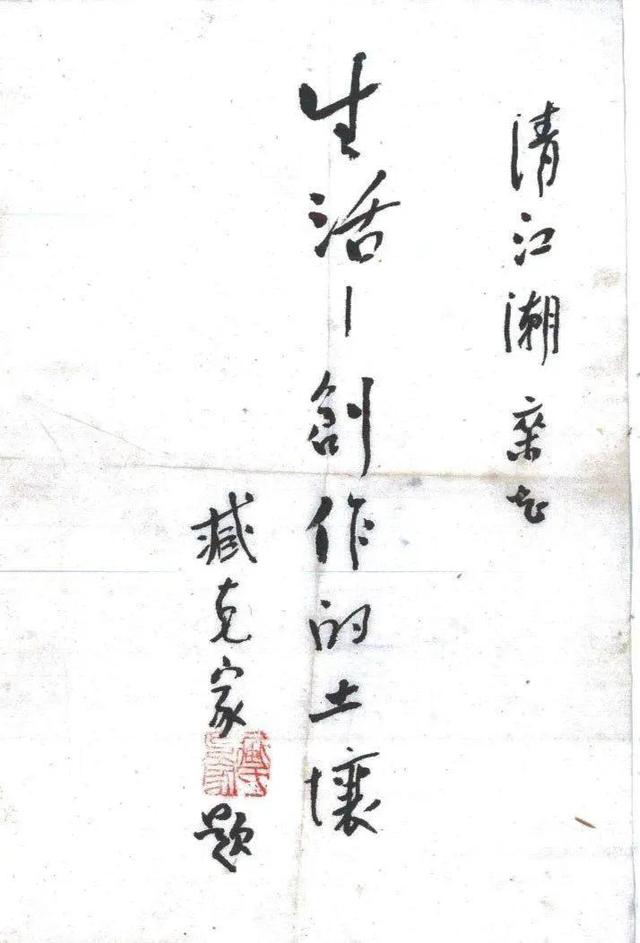 清江潮杂志
生活—創作的土壤
臧克家题